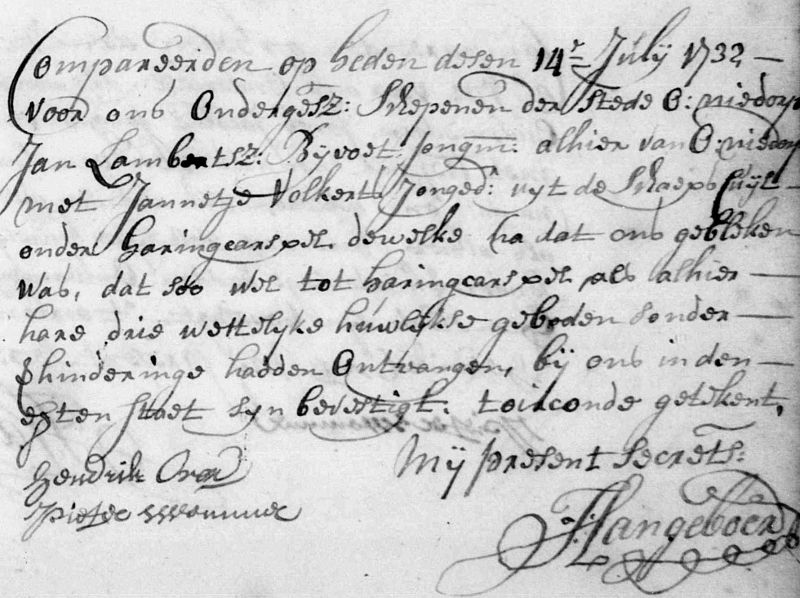 Compareerden op heden desen 14e July 1732 —
voor ons Ondergesz: Schepenen der stede O: niedorp
Jan Lambertsz: Byvoet jongm: alhier van O: niedorp
met Jannetje Volkerts Jonged: uyt de Schaeps Cuijl —
onder haringcarspel, dewelke na dat ons gebleken
was, dat soo wel tot haringcarspel als alhier —
hare drie wettelyke huwlykse geboden sonder —
verhinderinge hadden Ontvangen, bij ons in den —
egten staet syn bevestigt: toirconde getekent,
Mij present secrets:
Hendrik
Pieter
Langeboer